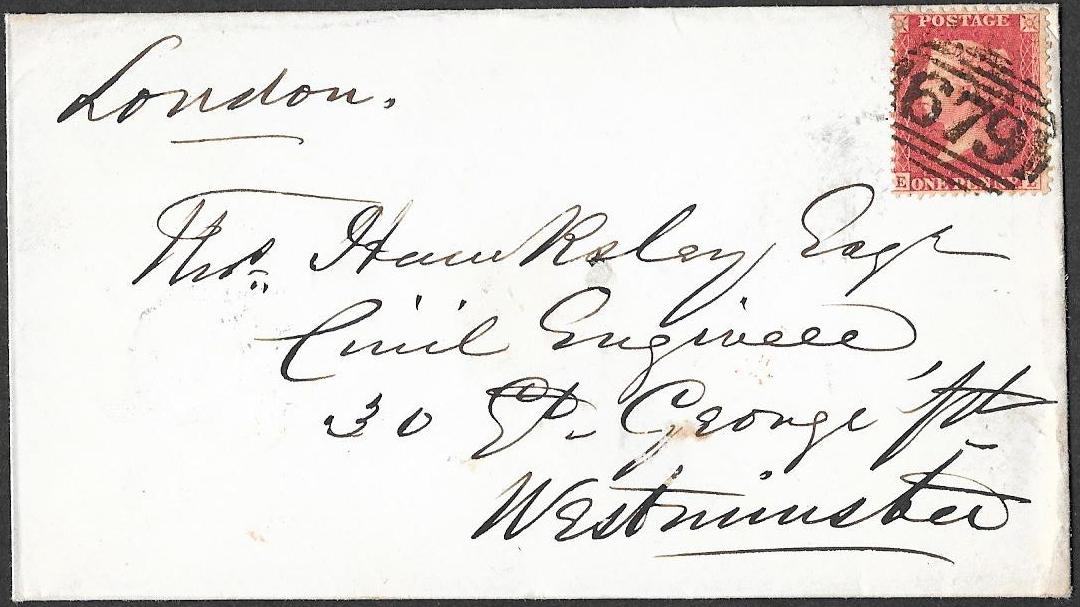 POSTAGE
679
E ONE PENNY
London.
Thos. Hawksley Esqr
Civil Engineer
30 Gt. George St
Westminster